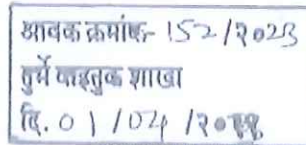 आवक क्रमांक- 152/2023
तुर्भे वाहतुक शाखा
दि. 01/04/20